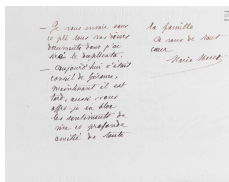 — Je vous envoie sous
ce pli tous vos divers
documents dont j'ai
le duplicata.
— Aujourd'hui c'était
conseil de
maintenant il est
tard, aussi vous
offre-je en bloc
les sentiments de
vive et profonde
amitié de toute
la famille
À vous de tout
cœur